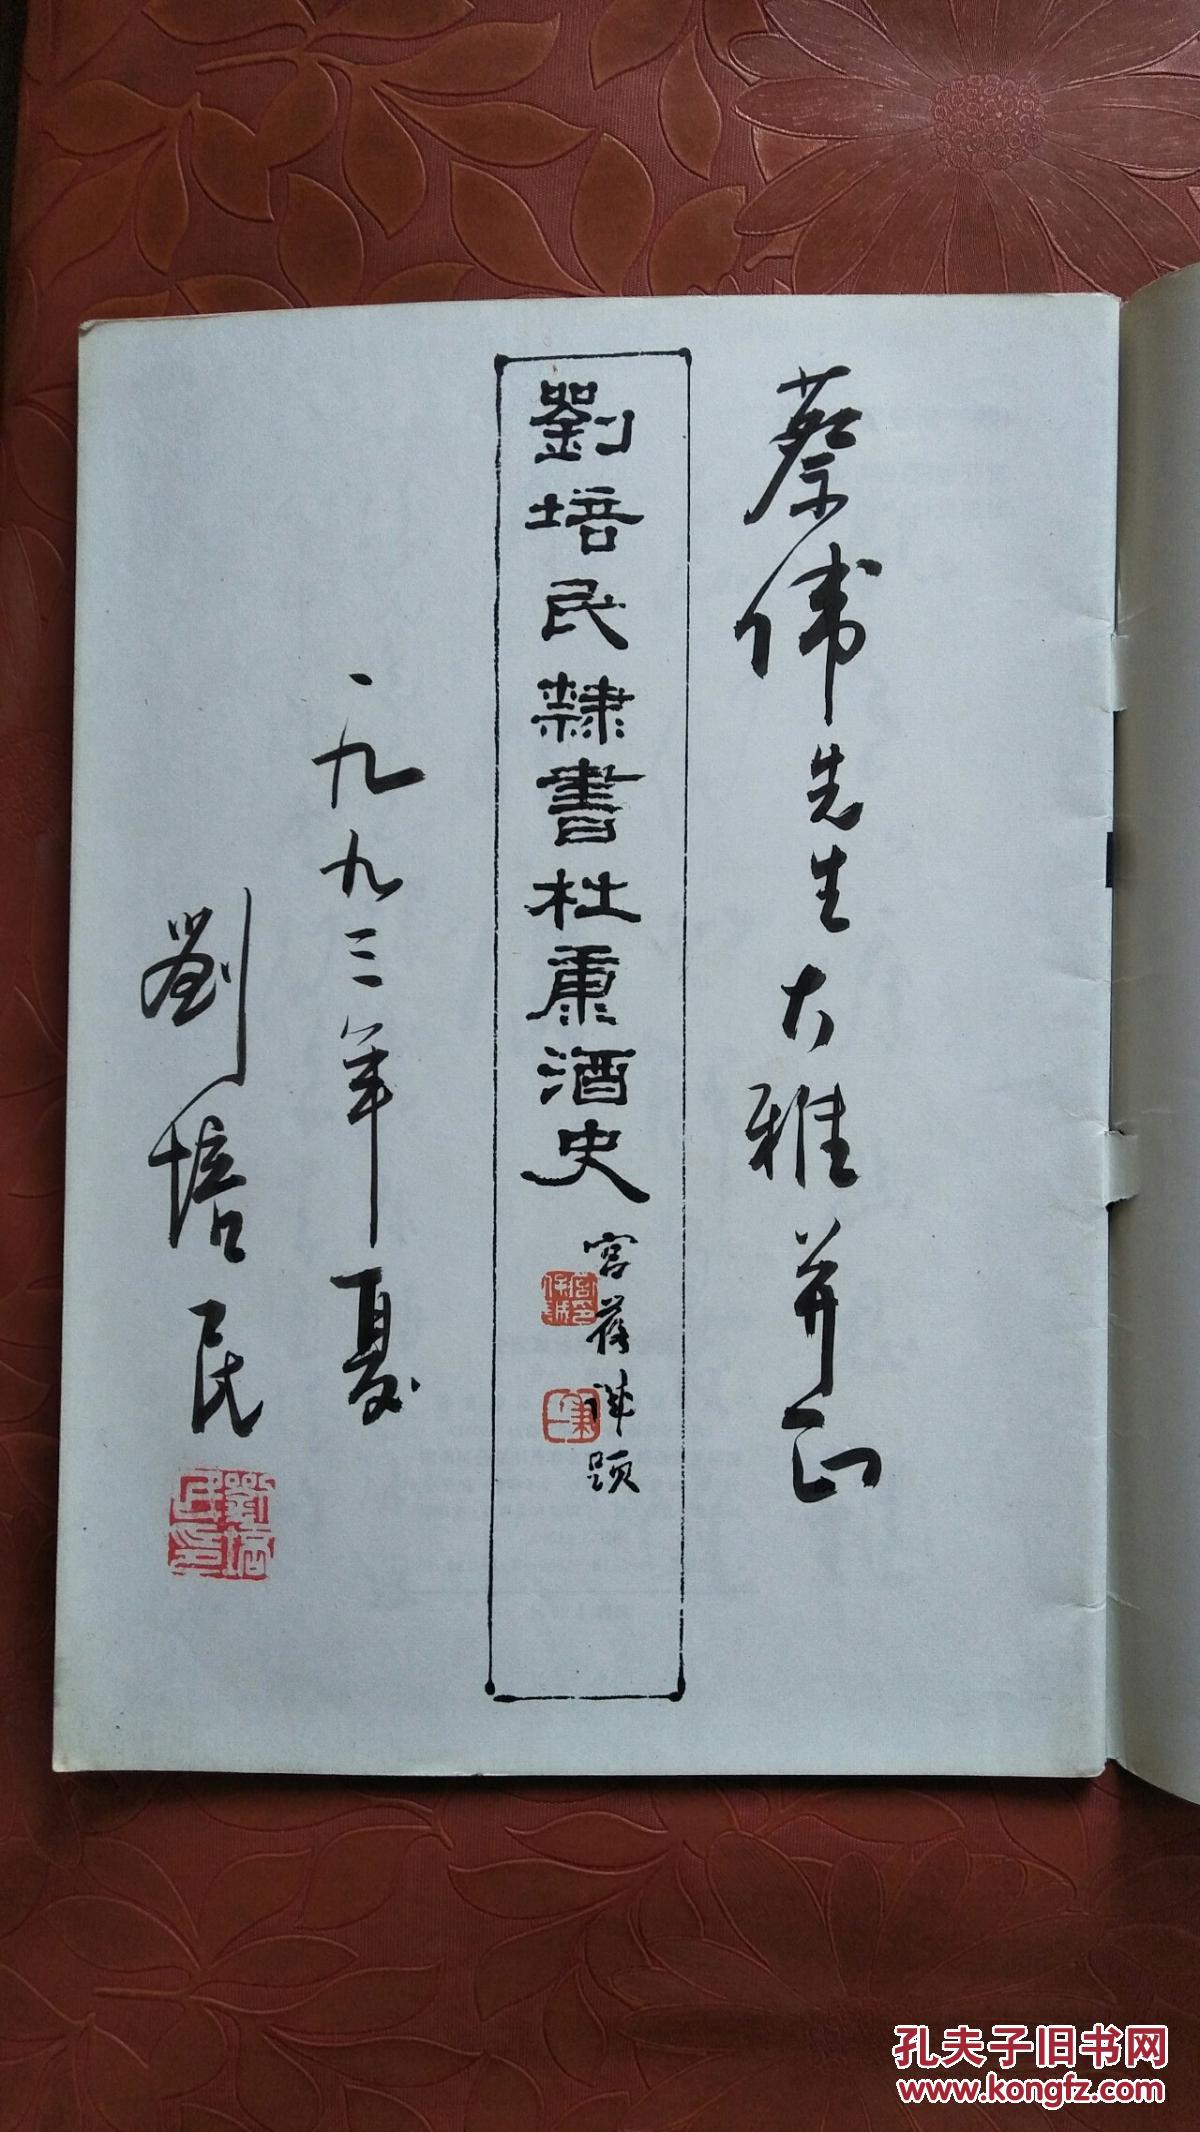 蔡伟先生大雅并正
劉培民隸書杜康酒史
宮葆诚题
一九九三年夏
劉培民
劉培民印
孔夫子旧书网
www.kongfz.com